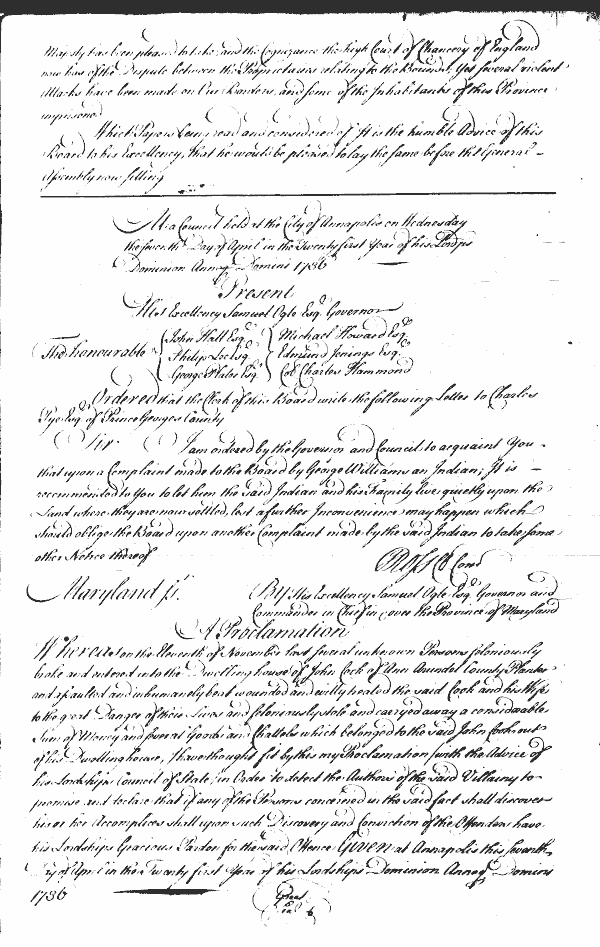 Majesty has been pleased to take and the Cognizance the high Court of Chancery of England
now has of the Dispute between the Proprietaries relating to the Bounds. Yet several violent
Attacks have been made on Our Borders, and some of the Inhabitants of this Province
imprisoned
Which Papers being read and considered of It is the humble Advice of this
Board to his Excellency, that he would be pleased to lay the same before the General
Assembly now sitting
At a Council held at the City of Annapolis on Wednesday
the seventh Day of April in the Twenty first Year of his Lordps
Dominion Annoq Domini 1736
Present
His Excellency Samuel Ogle Esqr. Governor
The honourable John Hall Esqr. Michael Howard Esqr.
Philip Lee Esqr. Edmund Jenings Esqr.
George Plater Esqr. Col Charles Hammond
Ordered that the Clerk of this Board write the following Letter to Charles
Esqr. of Prince Georges County
Sir I am ordered by the Governor and Council to acquaint You
that upon a Complaint made to the Board by George Williams an Indian; It is
recommended to You to let him the said Indian and his Family live quietly upon the
Land where they are now settled, lest a further Inconvenience may happen which
should oblige the Board upon another Complaint made by the said Indian to take some
other Notice thereof
Ross Cl Con
Maryland ss. By His Excellency Samuel Ogle Esqr. Governor and
Commander in Chief in & over the Province of Maryland
A Proclamation
Whereas on the Eleventh of November last several unknown Persons feloniously
brake and entered into the Dwelling house of John Cock of Ann Arundel County Planter
and assaulted and inhumanely beat wounded and evilly treated the said Cock and his Wife
to the great Danger of their Lives and feloniously stole and carryed away a considerable
Sum of Money and several Goods and Chattels which belonged to the said John Cock out
of his Dwelling house, I have thought fit by this my Proclamation (with the Advice of
his Lordships Council of State) in Order to detect the Authors of the said Villainy to
promise and declare that if any of the Persons concerned in the said fact shall discover
his or her Accomplices shall upon such Discovery and Conviction of the Offenders have
his Lordships Gracious Pardon for the said Offence Given at Annapolis this seventh
Day of April in the Twenty first Year of his Lordships Dominion Annoq Domini
1736 Great
Seal